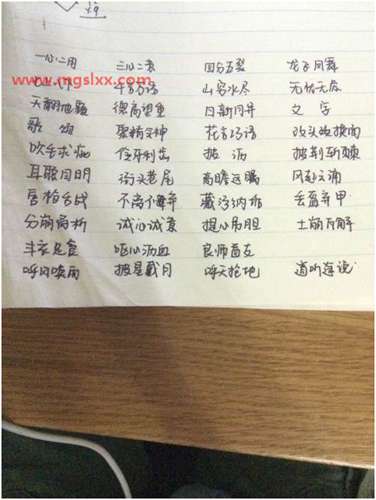 一心二用 三心二意 四分五裂 龙飞凤舞
www.mgslxx.com
千言万语 山穷水尽 无忧无虑
天翻地覆 德高望重 日新月异 文字
歌颂 聚精会神 花言巧语 改头换面
吹毛求疵 伶牙利齿 披荆斩棘
耳聪目明 街头巷尾 高瞻远瞩 风起云涌
唇枪舌战 不离不弃 藏污纳垢 丢盔弃甲
分崩离析 诚心诚意 提心吊胆 土崩瓦解
丰衣足食 呕心沥血 良师益友
呼风唤雨 披星戴月 呼天抢地 道听途说